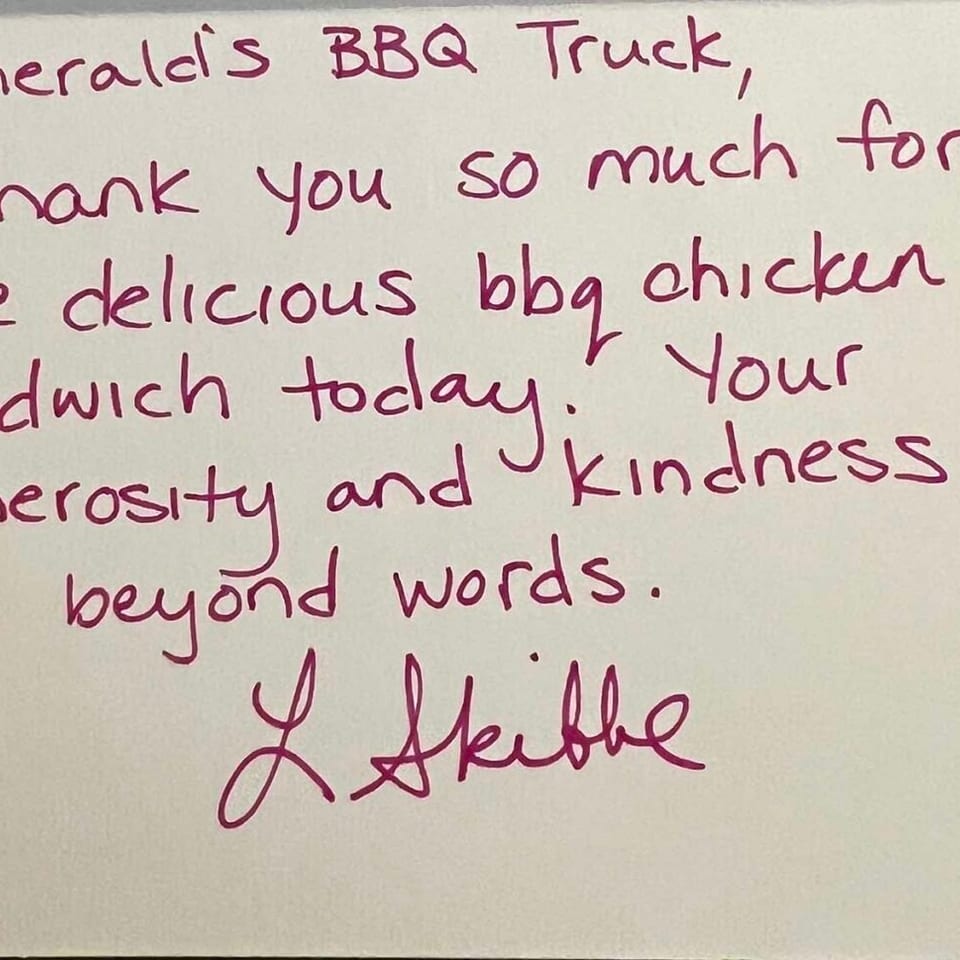 nerald's BBQ Truck,
hank you so much for
e delicious bbq chicken
dwich today. Your
nerosity and kindness
beyond words.
L Skibbe